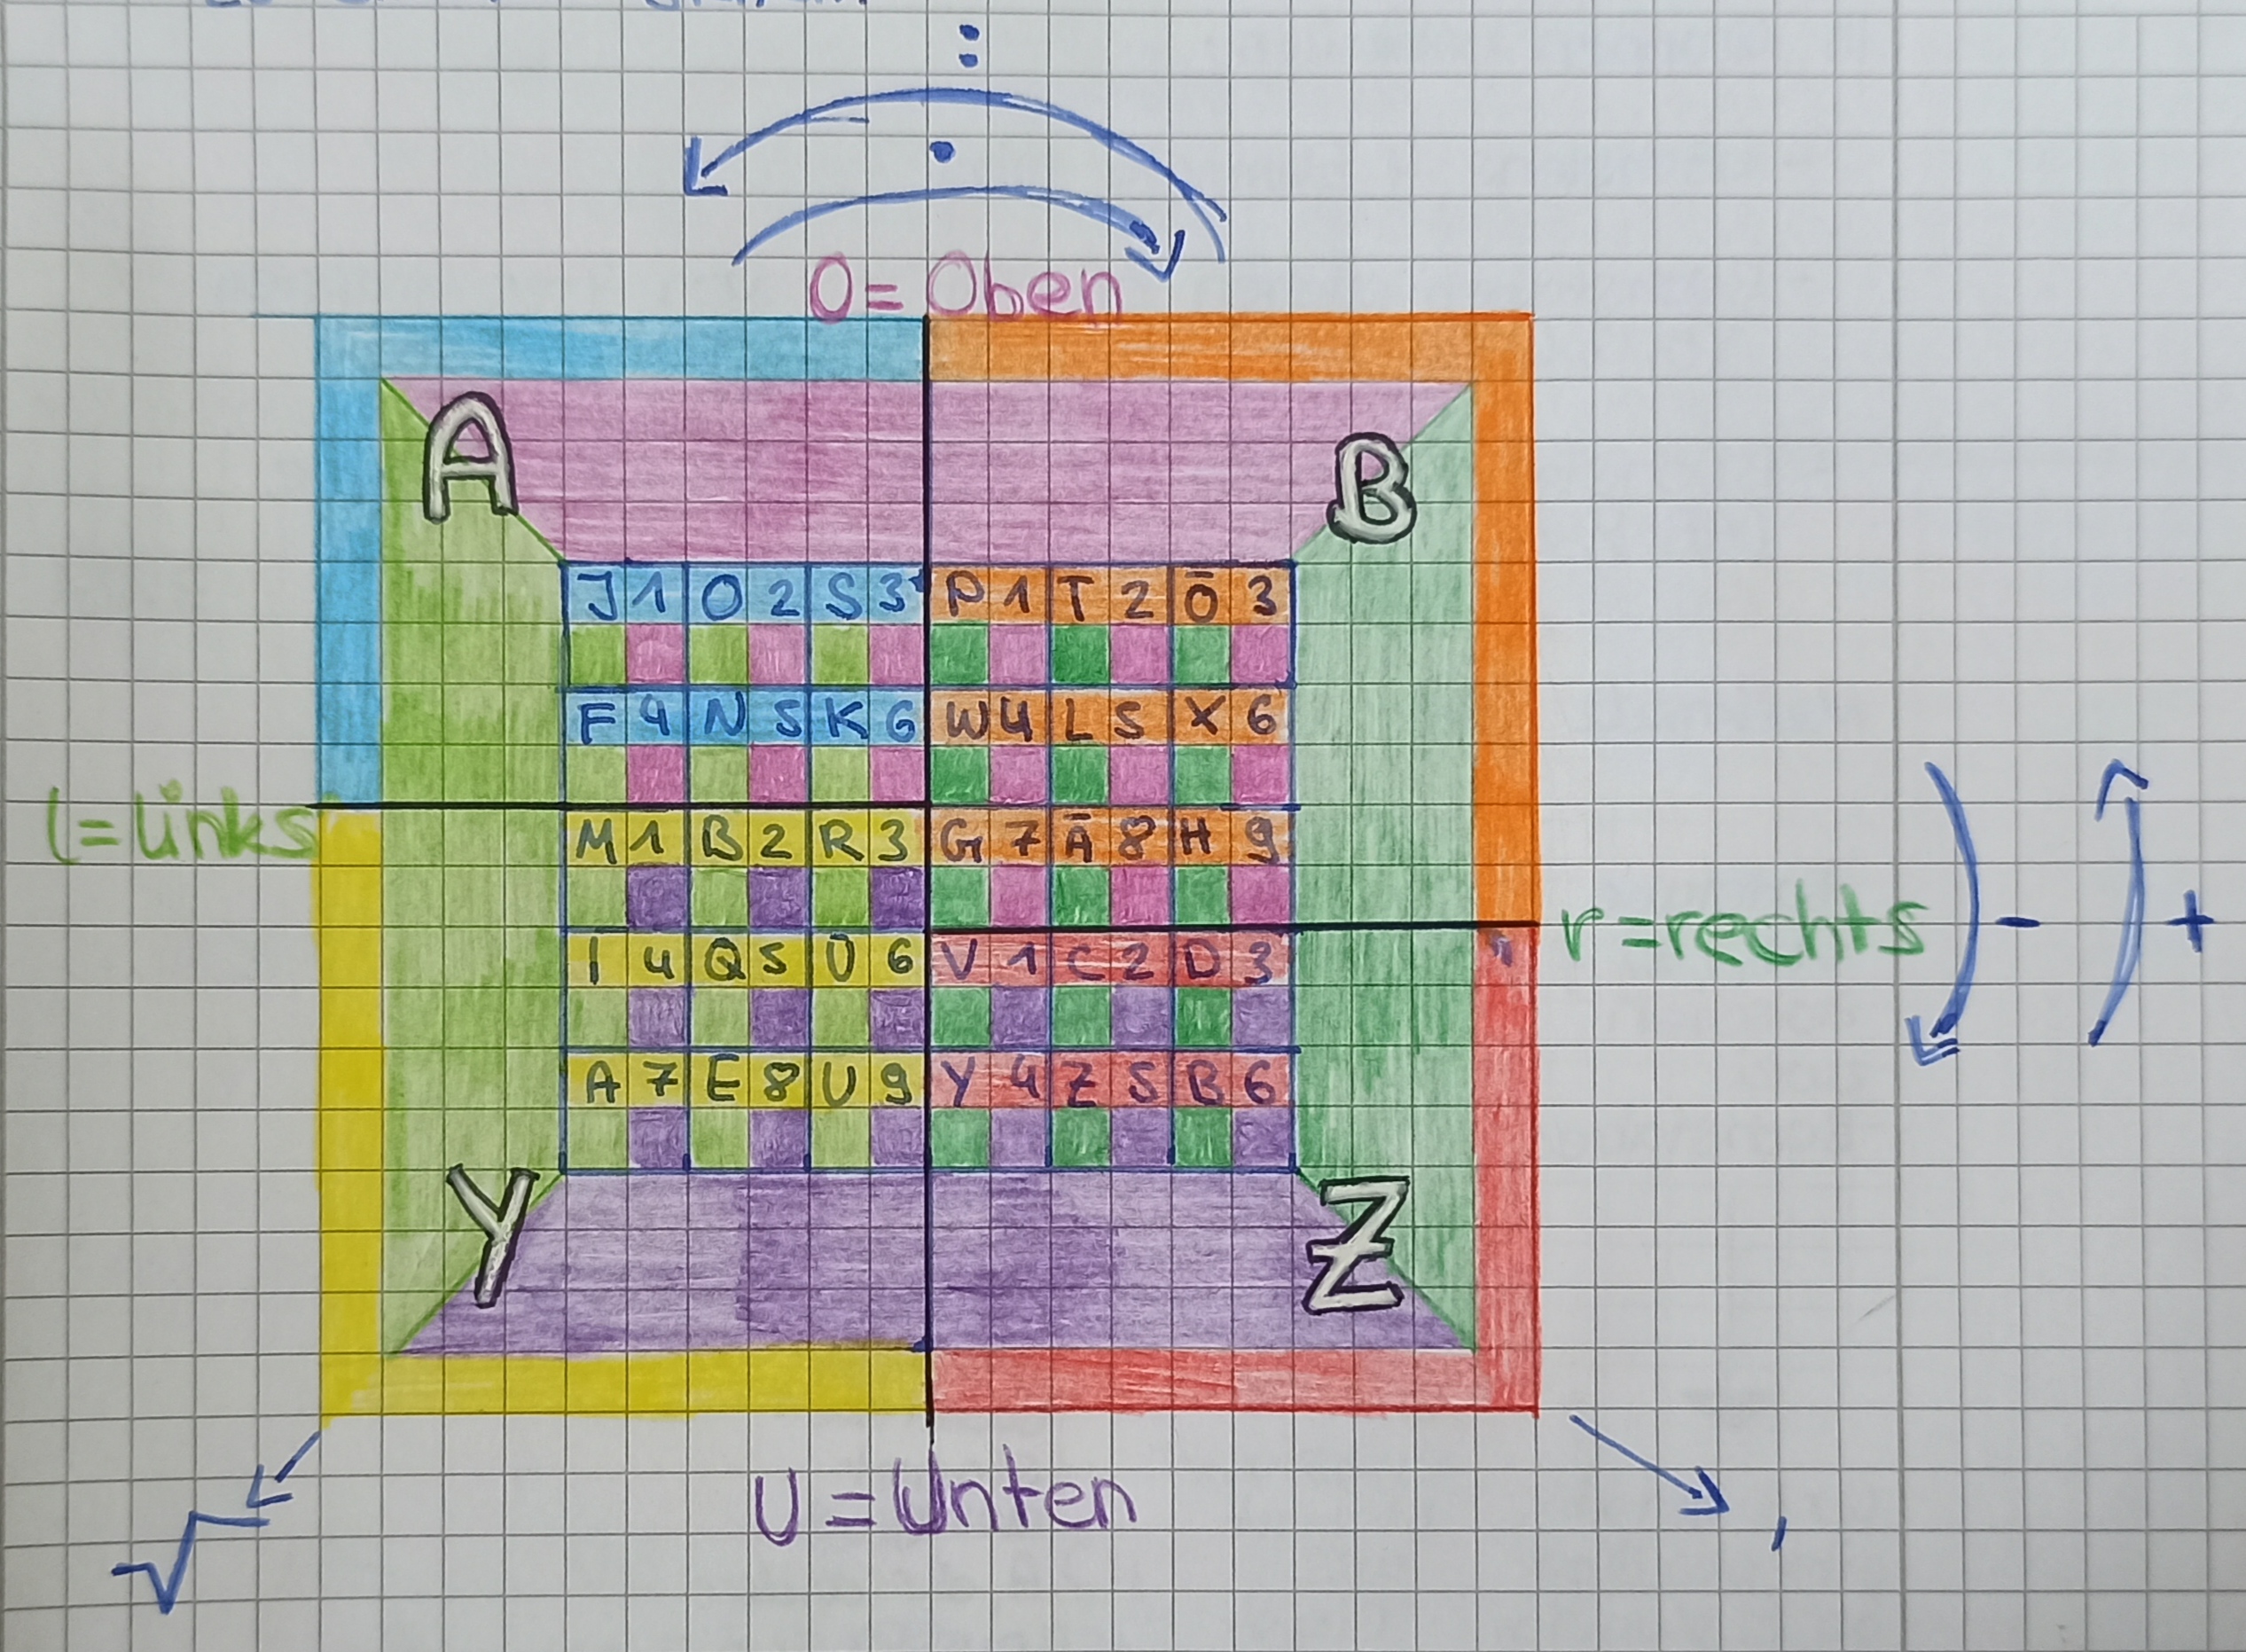 :
·
O= Oben
A B
J 1 O 2 S 3 P 1 T 2 Ō 3
F 4 N 5 K 6 W 4 L 5 X 6
l= Links
M 1 B 2 R 3 G 7 Ā 8 H 9
r=rechts - +
I 4 Q 5 Ū 6 V 1 C 2 D 3
A 7 E 8 U 9 Y 4 Z 5 B 6
Y Z
U = Unten
√ ,